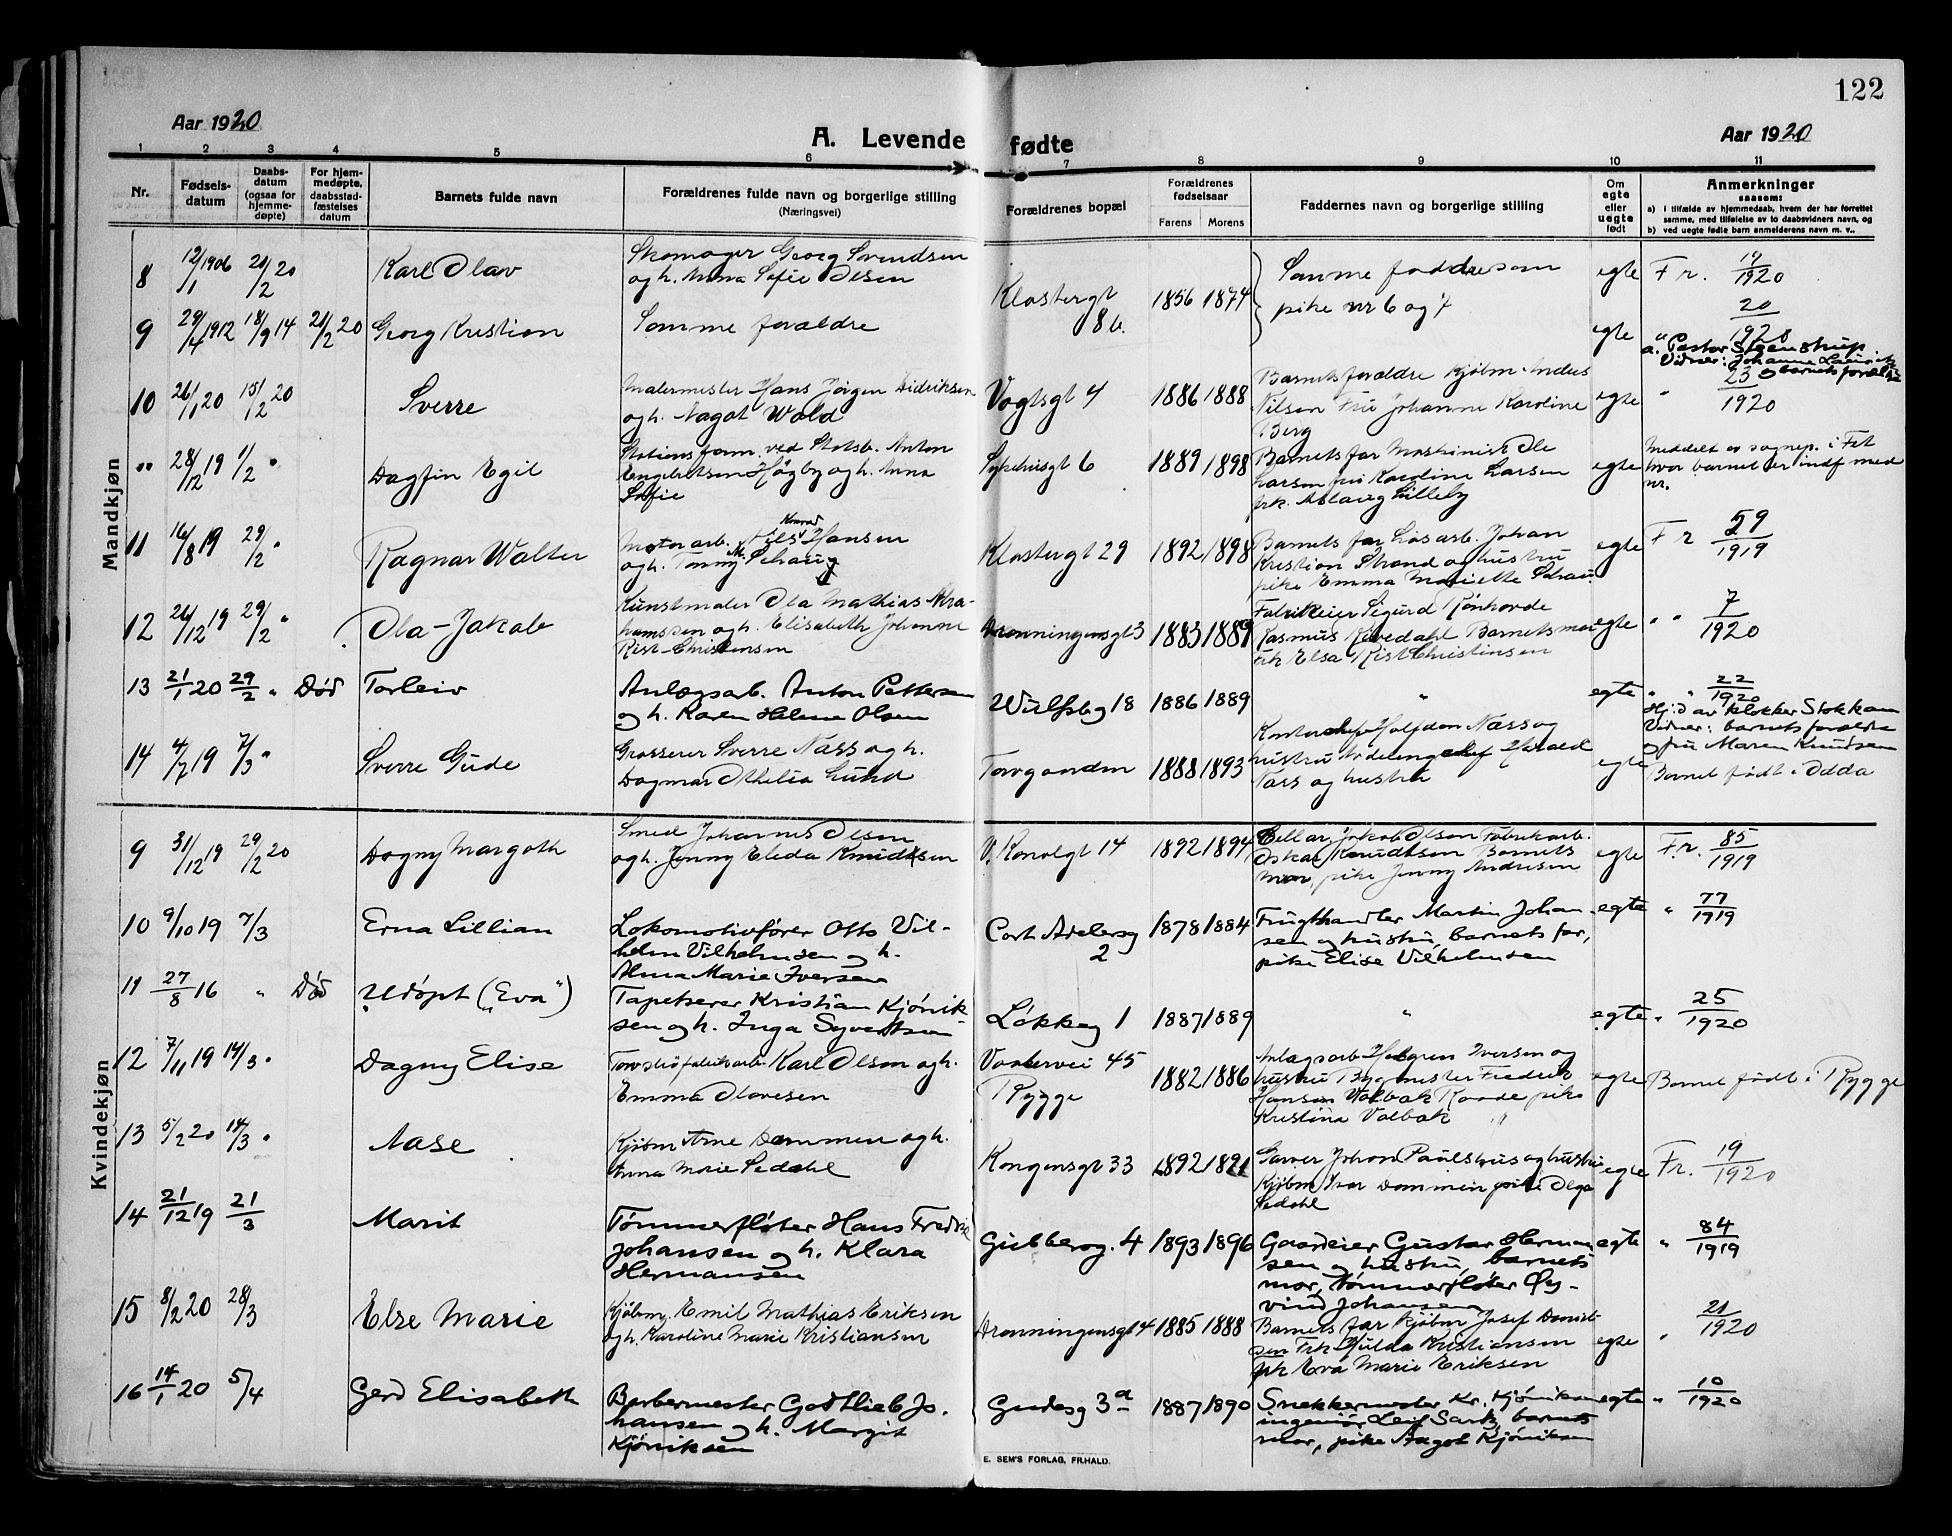 122
Aar 1920
A. Levende fødte
Aar 1920
1 2 3 4 5 6 7 8 9 10 11
Nr.
Fødsels-
datum
Daabs-
datum
(ogsaa for
hjemme-
døpte)
For hjem-
medøpte,
daabsstad-
fæstelses
datum
Barnets fulde navn
Forældrenes fulde navn og borgerlige stilling
(Næringsvei)
Forældrenes bopæl
Forældrenes
fødselsaar
Farens Morens
Faddernes navn og borgerlige stilling
Om
egte
eller
uegte
født
Anmerkninger
saasom:
a) i tilfælde av hjemmedaab, hvem der har forrettet
samme, med tilføielse av to daabsvidners navn, og
b) ved uegte fødte barn anmelderens navn m. v..
Mandkjøn
8 12/1 1906 20/2 20 Karl Olav
Skomager Georg Svendsen
og h. Anna Sofie Olsen
Klostergt
8 b.
1856 1874
Samme faddere som
pike nr 6 og 7
egte
Fr. 19/1920
9 29/4 1912 18/9 14 21/2 20 Georg Kristian
Samme forældre
egte
" 20/1920
a. Pastor Steenstrup
Vidner: Johanne
og barnets forældre
10 26/1 20 15/2 20 Sverre
Malermester Hans Jørgen Didriksen
og h. Aagot Wold
Vogtsgt 4
1886 1888
Barnets forældre Kjøbm. Anders
Nilsen Fru Johanne Karoline
Berg
egte
" 23/1920
" 28/12 19 1/2 " Dagfin Egil
Stationsform. ved Statsb. Anton
Engebretsen Høgby og h. Anna
Sofie
Sykehusgt 6
1889 1898
Barnets far Maskinist Ole
Larsen fru Karoline Larsen
frk. Aslaug Lilleby
egte
Meddelt os sognep. i Fet
hvor barnet er indf med
nr.
11 16/8 19 29/2 " Ragnar Walter
Motorarb. Konrad Hansen
og h. Tonny M. Schaug
Klostergt 29
1892 1898
Barnets far Løsarb. Johan
Kristian Strand og hustru
pike Emma Mariette Schau
egte
Fr 59/1919
12 26/12 19 29/2 " Ola-Jakob
Kunstmaler Ola Mathias Abra-
hamssen og h. Elisabeth Johanne
Rist-Christensen
Dronningensgt 3
1883 1889
Fabrikeier Sigurd Rønhovde
Rasmus Barnets mor
frk Elsa Rist Christensen
egte
" " 7/1920
13 21/1 20 29/2 " Død Torleiv
Anlægsarb. Anton Pettersen
og h. Karen Helene Olsen
Wulfsbg 18
1886 1889
"
egte
" " 22/1920
Hj.d av klokker Stokkan
Vidner: barnets forældre
og fru Maren Knudsen
14 4/7 19 7/3 " Sverre Gude
Grosserer Sverre Næss og h.
Dagmar Othelia Lund
Torvgaarden
1888 1893
Kontorchef Halfdan Næss og
hustru Avdelingschef Harald
Næss og hustru
egte
Barnet født i Odda
Kvindekjøn
9 31/12 19 29/2 20 Dagny Margoth
Smed Johannes Olsen
og h. Jenny Eleda Knudsen
V. Kanalgt 14
1892 1894
Jakob Olsen Fabrikarb.
Oskar Knudtsen Barnets
mor, pike Jenny Andresen
egte
Fr. 85/1919
10 9/10 19 7/3 Erna Lillian
Lokomotivfører Otto Vil-
helm Vilhelmsen og h.
Alma Marie Iversen
Cort Adelersg
2
1878 1884
Frugthandler Martin Johan-
sen og hustru, barnets far,
pike Elise Vilhelmsen
egte
" 77/1919
11 27/8 16 " Død Udøpt („Eva")
Tapetserer Kristian Kjønik-
sen og h. Inga Syvertsen
Løkkeg 1
1887 1889
"
egte
" 25/1920
12 7/11 19 14/3 " Dagny Elise
Torvstrøfabrikarb. Karl Olsen og h.
Emma Olavesen
Vaalervei 45
Rygge
1882 1886
Anlægsarb Iversen og
hustru Bygmester Fredrik
Hansen Valbak Raade pike
Kristina Valbak
egte
Barnet født i Rygge
13 5/2 20 14/3 " Aase
Kjøbm Arne Dammen og h.
Anna Marie Sedahl
Kongensgt 33
1892 1891
Garver Johan Paulshus og hustru
Kjøbm Ivar Dammen pike Olga
Sedahl
egte
Fr. 19/1920
14 21/12 19 21/3 Marit
Tømmerfløter Hans Fredrik
Johansen og h. Klara
Hermansen
Gubberog. 4
1893 1896
Gaardeier Gustav Herman
sen og hustru, barnets
mor, tømmerfløter Øy-
vind Johansen
egte
" 84/1919
15 8/2 20 28/3 Else Marie
Kjøbm. Emil Mathias Eriksen
og h. Karoline Marie Kristiansen
Dronningensgt 4
1885 1888
Barnets far kjøbm Josef
Frk Hulda Kristiansen
frk Eva Marie Eriksen
egte
" 21/1920
16 14/1 20 5/4 Gerd Elisabeth
Barbermester Godtlieb Jo-
hansen og h. Margit
Kjøniksen
Gudesg 3a
1887 1890
Snekkermester Kr. Kjøniksen
ingeniør Leif Sark, barnets
mor, pike Aagot Kjøniksen
egte
" 10/1920
E. SEM'S FORLAG, FR.HALD.